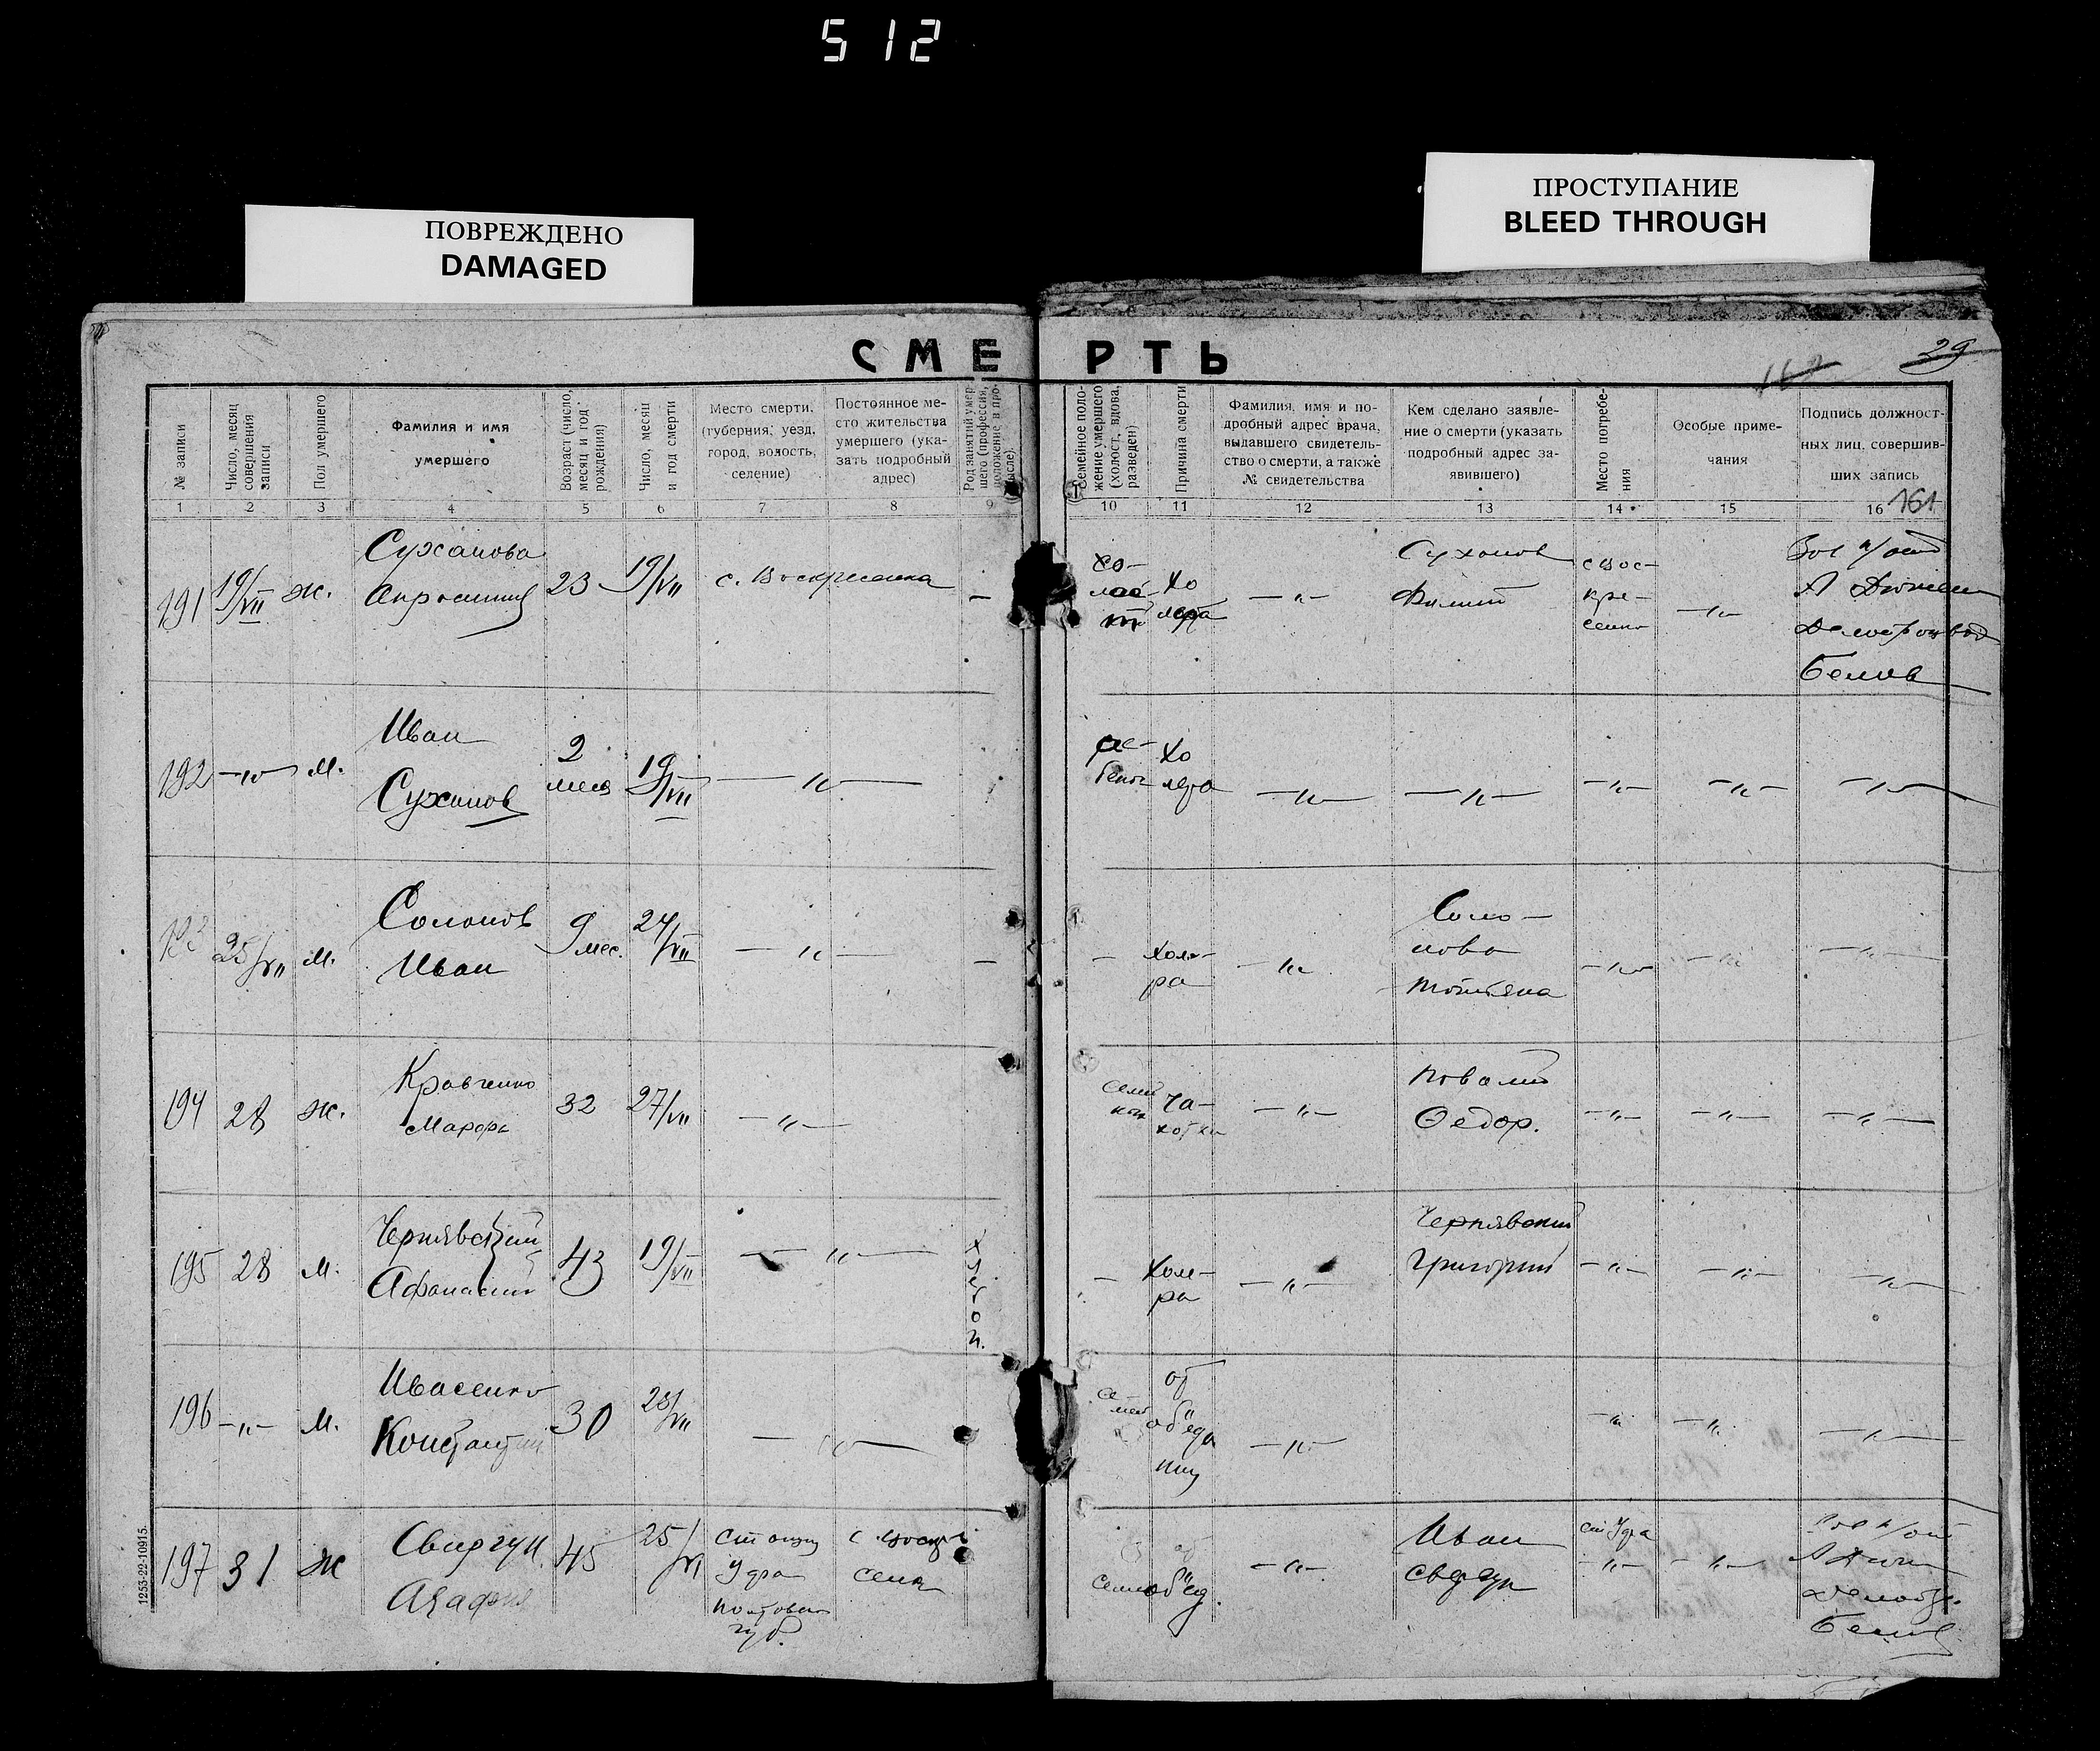 512
ПОВРЕЖДЕНО
DAMAGED
ПРОСТУПАНИЕ
BLEED THROUGH
СМЕРТЬ
29
162
№ записи
Число, месяц совершения записи
Пол умершего
Фамилия и имя
умершего
Возраст (число, месяц и год рождения)
Число, месяц и год смерти
Место смерти,
(губерния, уезд,
город, волость,
селение)
Постоянное ме-
сто жительства
умершего (ука-
зать подробный
адрес)
Род занятий умер-
шего (профессия,
положение в про-
мысле).
Семейное поло-
жение умершего
(холост, вдова,
разведен)
Причина смерти
Фамилия, имя и по-
дробный адрес врача,
выдавшего свидетель-
ство о смерти, а также
№ свидетельства
Кем сделано заявле-
ние о смерти (указать
подробный адрес за-
явившего)
Место погребе-
ния
Особые приме-
чания
Подпись должност-
ных лиц, совершив-
ших запись
161
1 2 3 4 5 6 7 8 9 10 11 12 13 14 15 16
191 19/VII ж. Суханова
23 19/VII с. Воскресенка —
хо-
ле
ра
—„—
Суханов
Филип
с Вос-
кре-
сенка
—„—
Белов
192 —„— м. Иван
Суханов
2
меся
19/VII —„—
ре-
бенок
хо
лера
—„— —„— —„— —„— —„—
193 25/VII м. Солонов
Иван
9 мес. 24/VII —„— —
—
холе-
ра
—„—
Соло-
нова
—„— —„— —„—
194 28 ж. Кравченко
Марфа
32 27/VII —„—
ча-
хотка
—„—
Федор.
—„— —„— —„—
195 28 м. Чернявский
Афанасий
43 19/VII —„—
хлебоп.
—
холе-
ра
—„—
Чернявский
Григорий
—„— —„— —„—
196 —„— м. Ивасенко
Константин
30 28/VII —„—
се
мей
от
об'еда
—„— —„— —„— —„—
197 31 ж Свиргун
Агафия
45 25/VI
губ.
об'ед.
—„—
Иван
—„— —„—
Белов
1253-22-10915.